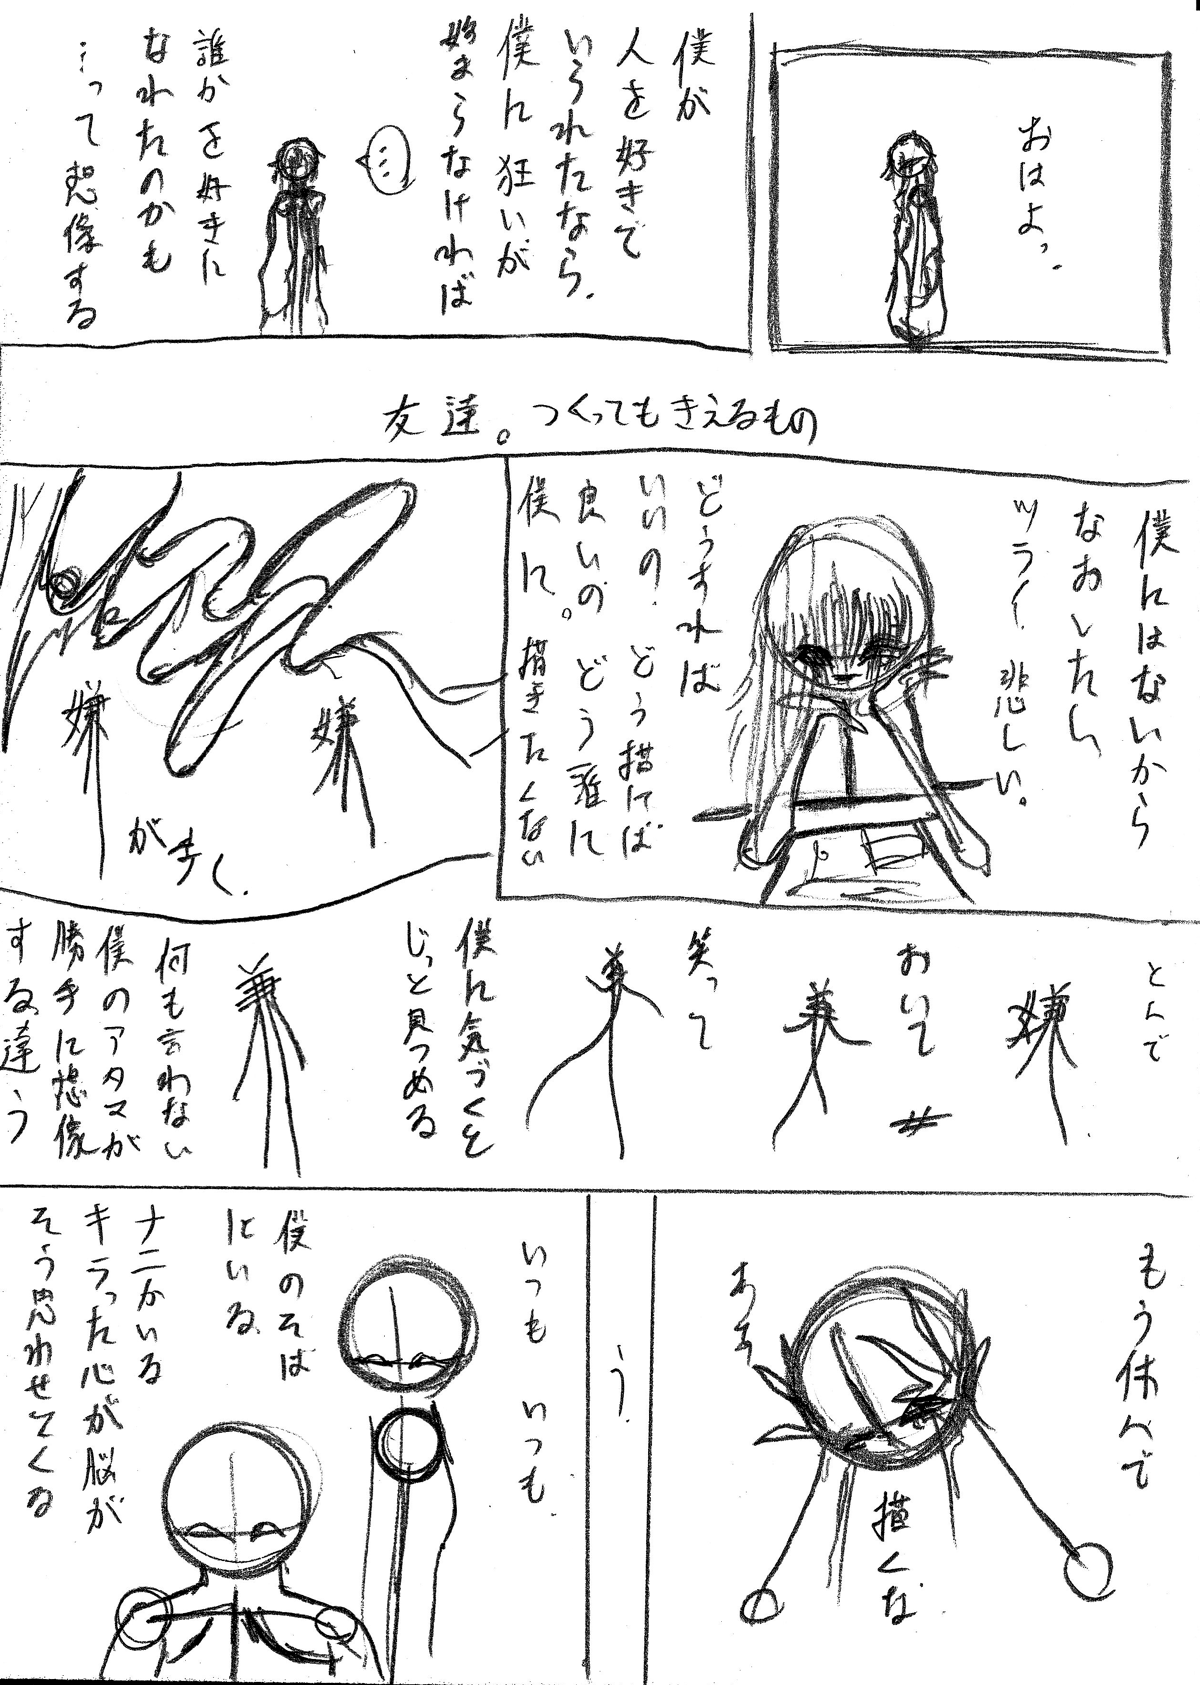 おはよっ.
僕が
人を好きで
いられたなら.
僕に狂いが
始まらなければ
…
誰かを好きに
なれたのかも
…って想像する
友達。つくってもきえるもの
僕にはないから
なおしたい
ツライ! 悲しい。
どうすれば
いいの? どう描けば
良いの どう誰に
僕に。描きたくない
嫌
嫌
がまく.
とんで
嫌
おいて
兼
笑って
兼
僕に気づくと
じっと見つめる
兼
何も言わない
僕のアタマが
勝手に想像
する違う
もう休んで
描くな
ああ
う.
いつも いつも.
僕のそば
にいる.
ナニかいる
キラった心が脳が
そう思わせてくる